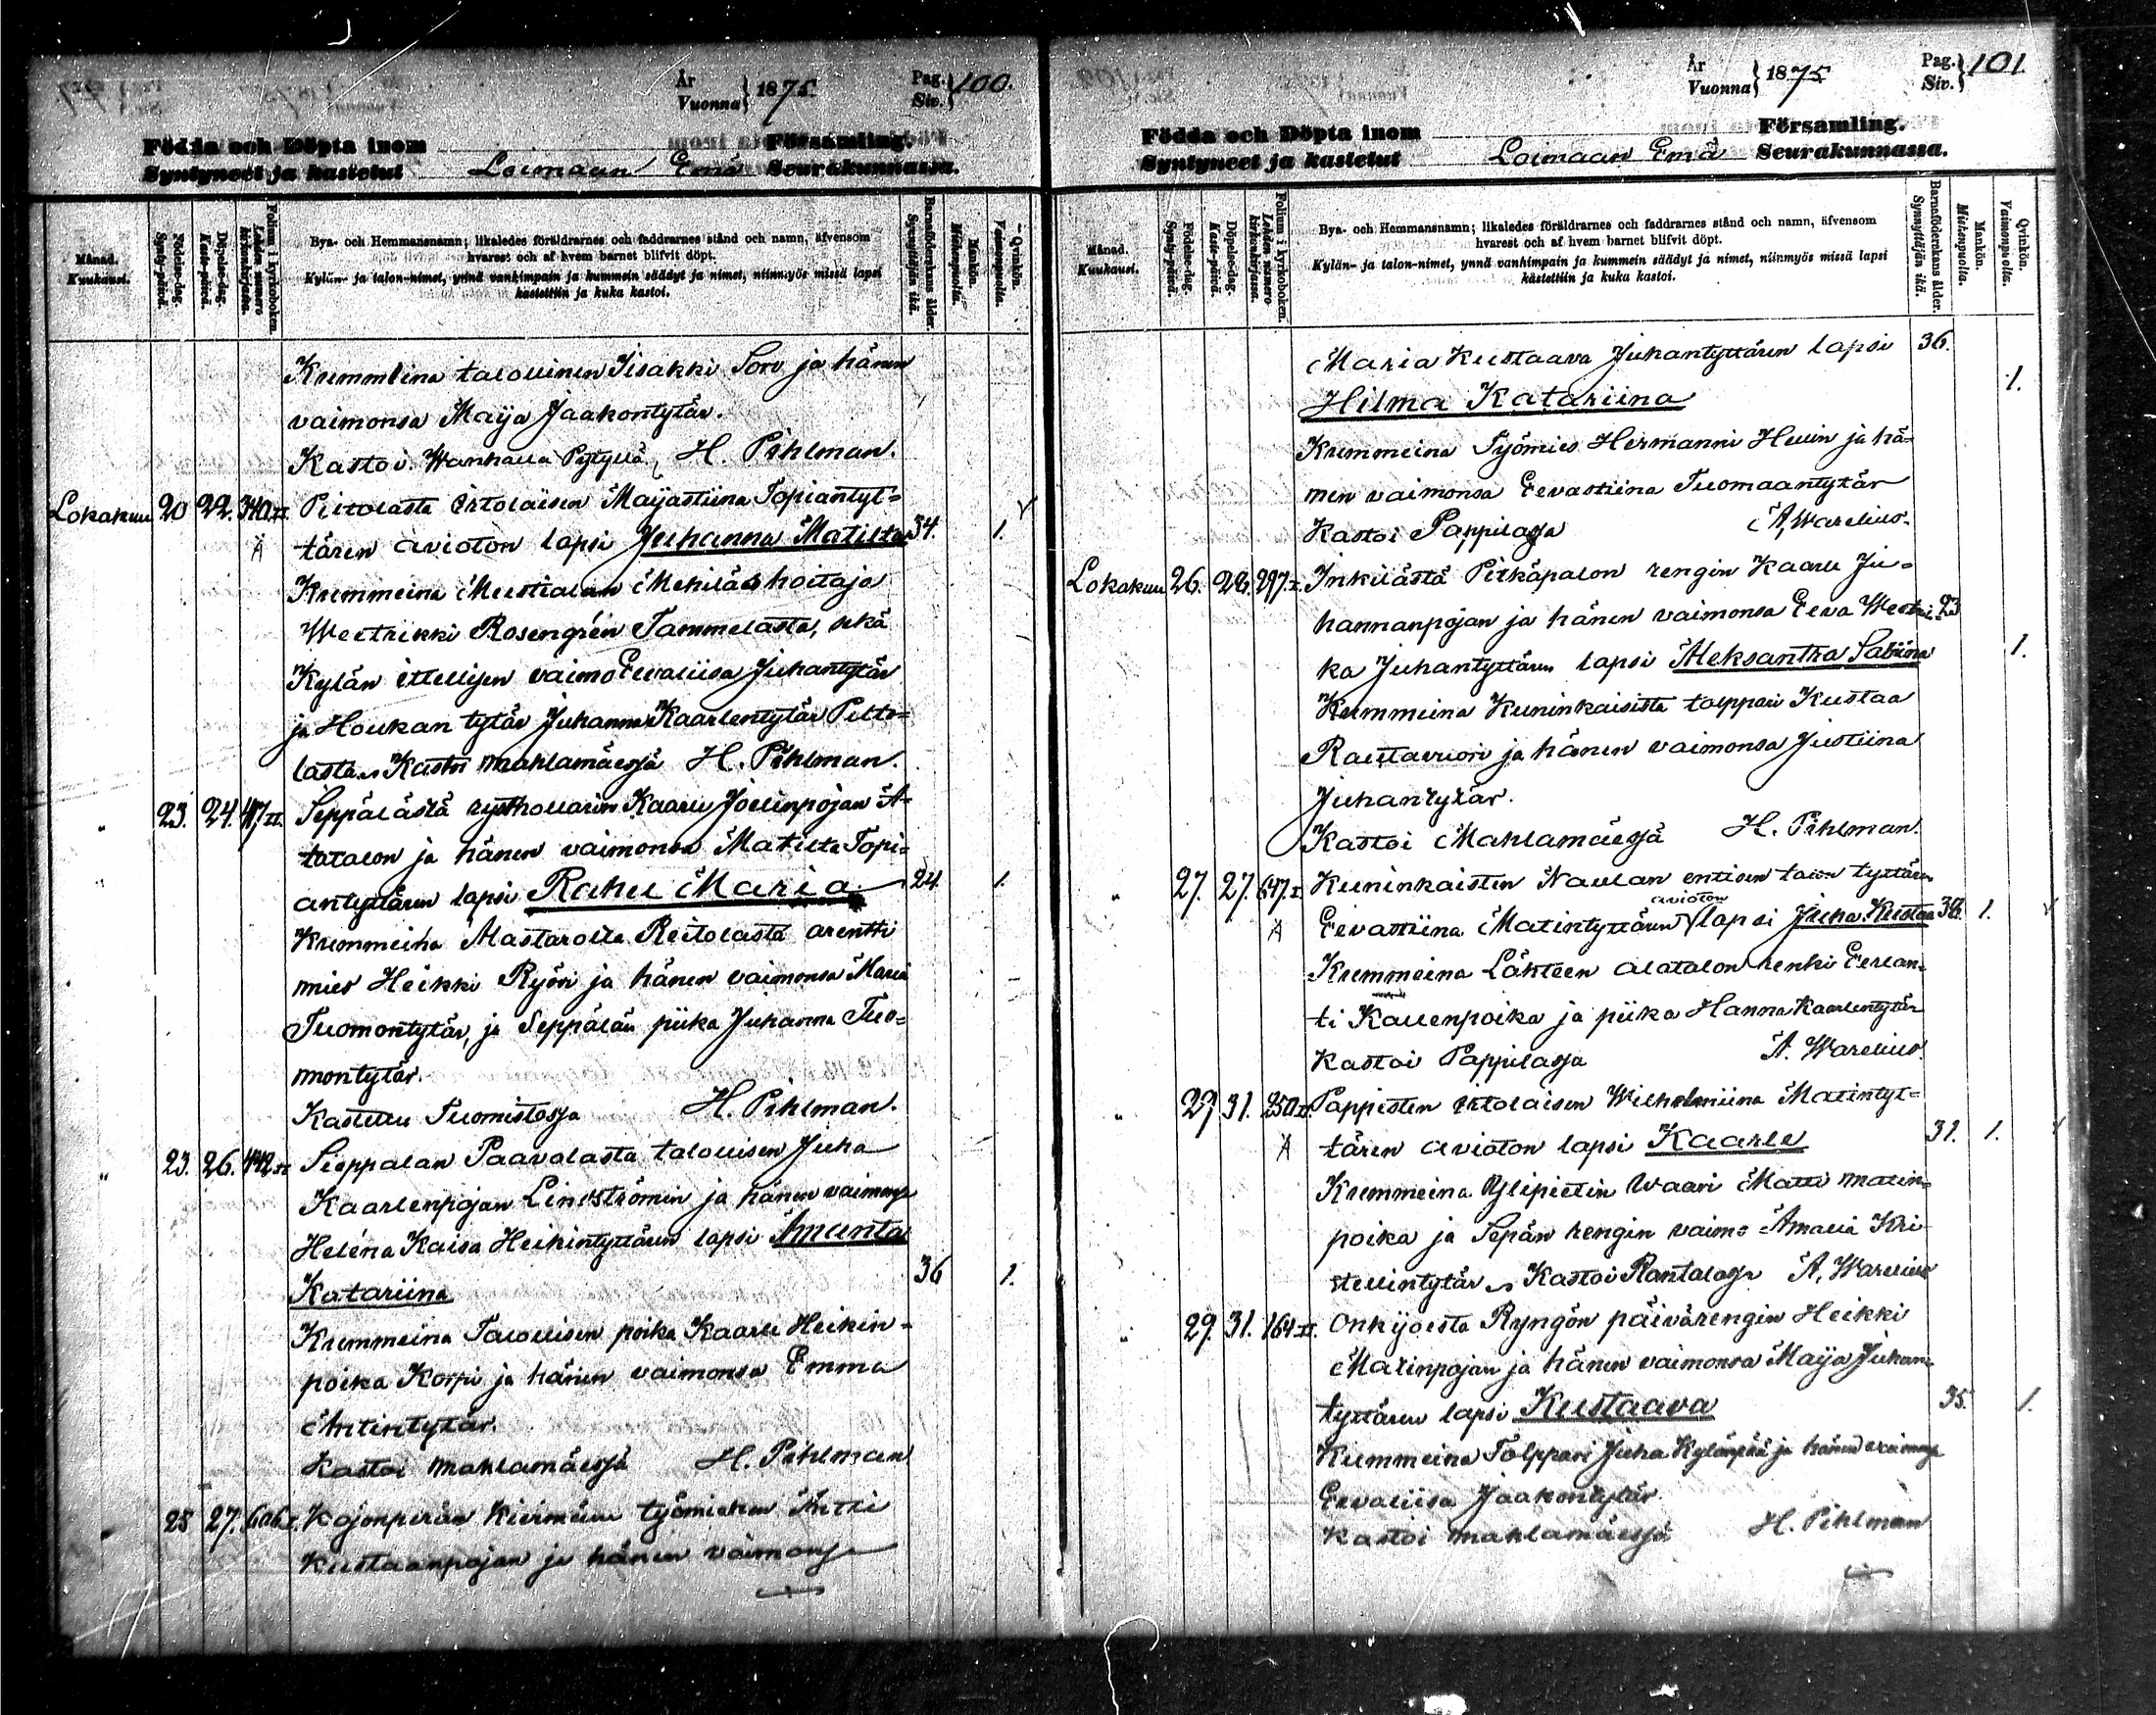 År
Vuonna } 1875
Pag.
Siv. } 100.
Födda och Döpta inom Församling.
Syntyneet ja kastetut Loimaan Emä Seurakunnassa.
Månad.
Kuukausi.
Födelse-dag.
Synty-päivä.
Döpelse-dag.
Kaste-päivä.
Folium i kyrkoboken.
Lehden numero
kirkonkirjassa.
Bya- och Hemmansnamn; likaledes föräldrarnes och faddrarnes stånd och namn, äfvensom
hvarest och af hvem barnet blifvit döpt.
Kylän- ja talon-nimet, ynnä vanhimpain ja kummein säädyt ja nimet, niinmyös missä lapsi
kastettiin ja kuka kastoi.
Barnaföderskans ålder.
Synnyttäjän ikä.
Mankön.
Miehenpuolta.
Qvinkön.
Vaimonpuolta.
Kummeina talollinen Iisakki Sorv ja hänen
vaimonsa Maija Jaakontytär.
Kastoi Wanhalla H. Pihlman.
Lokakuu 20 22. 340 II. Peltolasta itolaisen Maijastiina Topiantyt=
A tären avioton lapsi Juhanna Matilta 34. 1.
Kummeina Mustialan Mehiläshoitaja
Weetrikki Rosengrén Tammelasta, sekä
Kylän itellisen vaimo Eevaliisa Juhantytär
ja Houkan tytär Juhanna Kaarlentytär Pelto=
lasta. Kastoi Mahlamäessä H. Pihlman.
" 23. 24. 417 II. Seppälästä rysthollarin Kaarle Joelinpojan A=
latalon ja hänen vaimonsa Matilta Topi=
antyttären lapsi Rahu Maria 24. 1.
Kummeina Alastarolta Reitolasta arentti
mies Heikki Ryöri ja hänen vaimonsa Maria
Tuomontytär, ja Seppälän piika Juhanna Tuo=
montytär.
Kastettu Tuomistossa H. Pihlman.
" 23. 26. 442 II Sieppalan Paavalasta talollisen Juha
Kaarlenpojan Lindströmin ja hänen vaimonsa
Heléna Kaisa Heikintyttären lapsi Amanta
Katariina 36 1.
Kummeina Talollisen poika Kaarle Heikin=
poika Korpi ja hänen vaimonsa Emma
Antintytär.
Kastoi Mahlamäessä H. Pihlman
" 25 27. 606 I. Kojonperän työmiehen Antti
Kustaanpojan ja hänen vaimonsa
År
Vuonna } 1875
Pag.
Siv. } 101.
Födda och Döpta inom Församling.
Syntyneet ja kastetut Loimaan Emä Seurakunnassa.
Månad.
Kuukausi.
Födelse-dag.
Synty-päivä.
Döpelse-dag.
Kaste-päivä.
Folium i kyrkoboken.
Lehden numero
kirkonkirjassa.
Bya- och Hemmansnamn; likaledes föräldrarnes och faddrarnes stånd och namn, äfvensom
hvarest och af hvem barnet blifvit döpt.
Kylän- ja talon-nimet, ynnä vanhimpain ja kummein säädyt ja nimet, niinmyös missä lapsi
kastettiin ja kuka kastoi.
Barnaföderskans ålder.
Synnyttäjän ikä.
Mankön.
Miehenpuolta.
Qvinkön.
Vaimonpuolta.
Maria Kustaava Juhantyttären lapsi 36.
Hilma Katariina 1.
Kummeina Työmies Hermanni Helin ja hä=
nen vaimonsa Eevastiina Tuomaantytär
Kastoi Pappilassa A, Warelius.
Lokakuu 26. 28. 297. I. Inkilästä Pitkäpalon rengin Kaarle Ju=
hannanpojan ja hänen vaimonsa Eeva Weetrii= 23
ka Juhantyttären lapsi Aleksantra Sabiina 1.
Kummeina Kuninkaisista tolppari Kustaa
Rautavuori ja hänen vaimonsa Justiina
Juhantytär.
Kastoi Mahlamäessä H. Pihlman.
" 27. 27. 647. I Kuninkaisten Naulan entisen talon tyttären
A Eevastiina Matintyttären avioton lapsi Juha Kustaa 38. 1.
Kummeina Lähteen Alatalon renki Eerlan=
ti Kallenpoika ja piika Hanna Kaarlentytär
Kastoi Pappilassa A. Warelius.
" 27 31. 250 II Pappisten itolaisen Wilhelmiina Matintyt=
A tären avioton lapsi Kaarle 31. 1.
Kummeina Ylipietin Waari Matti Matin=
poika ja Sepän rengin vaimo Amalia Kri
stellintytär. Kastoi Rantalassa A, Warelius
" 29. 31. 164 II. Onkijoesta Ryngön päivärengin Heikki
Matinpojan ja hänen vaimonsa Maija Juhan=
tyttären lapsi Kustaava 35. 1.
Kummeina Tolppari Juha Kylänpää ja hänen vaimonsa
Eevaliisa Jaakontytär.
Kastoi Mahlamäessä H. Pihlman